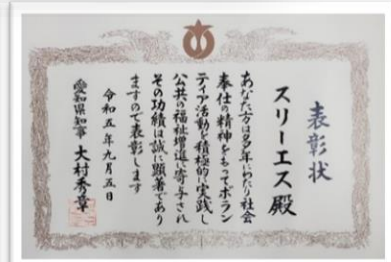 表彰状
スリーエス殿
あなた方は多年にわたり社会
奉仕の精神をもってボラン
ティア活動を積極的に実践し
公共の福祉増進に寄与され
その功績は誠に顕著であり
ますので表彰します
令和五年九月五日
愛知県知事 大村秀章